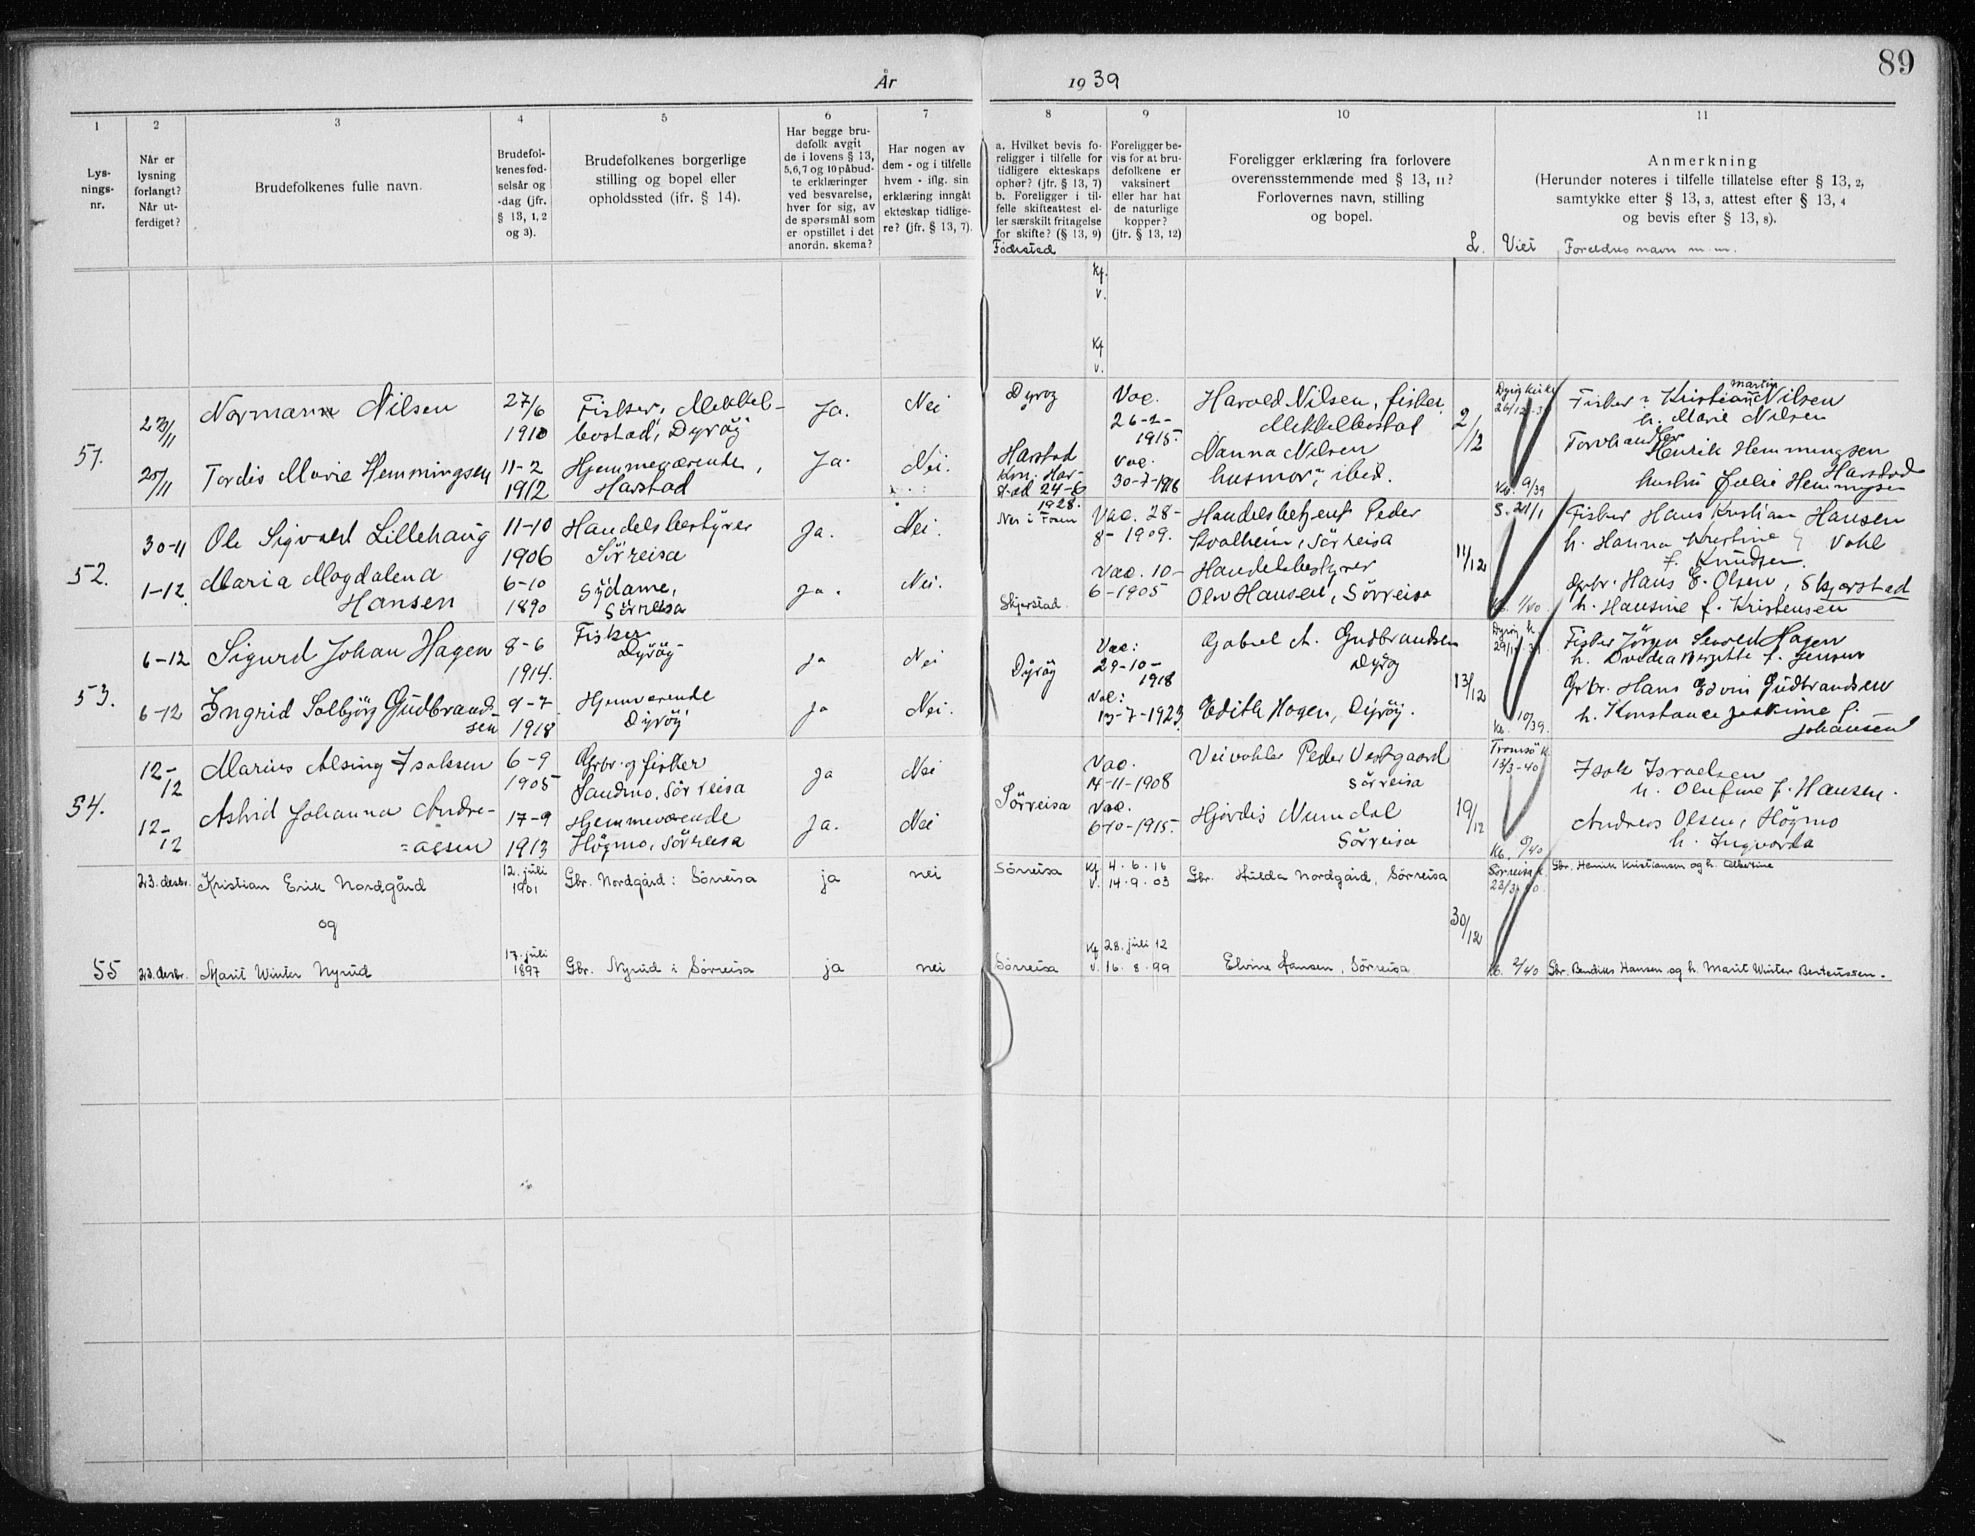 89
År 1939
1 2 3 4 5 6 7 8 9 10 11
Lys-
nings-
nr.
Når er
lysning
forlangt?
Når ut-
ferdiget?
Brudefolkenes fulle navn.
Brudefol-
kenes fød-
selsår og
-dag (jfr.
§ 13, 1, 2
og 3).
Brudefolkenes borgerlige
stilling og bopel eller
opholdssted (ifr. § 14).
Har begge bru-
defolk avgit
de i lovens § 13,
5,6,7 og 10 påbud-
te erklæringer
ved besvarelse,
hver for sig, av
de spørsmål som
er opstillet i det
anordn. skema?
Har nogen av
dem - og i tilfelle
hvem - iflg. sin
erklæring inngåt
ekteskap tidlige-
re? (jfr. § 13, 7).
a. Hvilket bevis fo-
religger i tilfelle for
tidligere ekteskaps
ophør? (jfr. § 13, 7)
b. Foreligger i til-
felle skifteattest el-
ler særskilt fritagelse
for skifte? (§ 13, 9)
Fødested
Foreligger be-
vis for at bru-
defolkene er
vaksinert
eller har hat
de naturlige
kopper?
(jfr. § 13, 12)
Foreligger erklæring fra forlovere
overensstemmende med § 13, 11?
Forlovernes navn, stilling
og bopel.
L.
Anmerkning
(Herunder noteres i tilfelle tillatelse efter § 13, 2,
samtykke efter § 13, 3, attest efter § 13, 4
og bevis efter § 13, 8).
Viet Foreldres navn m. m.
Kf.
v.
Kf
v.
51.
23/11 Normann Nilsen 27/6 1910 Fisker, Mekkel-
bostad, Dyrøy Ja. Nei Dyrøy Vac.
26-2-
1915. Harald Nilsen, fisker
Mekkelbostad 2/12 Dyrøy kirke
26/12-39 Fisker Kristian Martin Nilsen
h. Marie Nilsen
25/11 Tordis Marie Hemmingsen 11-2
1912 Hjemmeværende,
Harstad Ja. Nei. Harstad
Kon. Har-
stad 24-6
1928. Vac.
30-7-1918 Nanna Nilsen
husmor, ibid. Kb. 9/39 Henrik Hemmingsen
Harstad
hustru Julie Hemmingsen
52.
30-11 Ole Sigvald Lillehaug 11-10
1906 Handelsbestyrer
Sørreisa Ja. Nei. Vac. 28-
8-1909. Handelsbetjent Peder
Kvalheim, Sørreisa 11/12 Fisker Hans Kristian Hansen
h. Hanna Kristine
f. Knudsen.
1-12 Maria Magdalena
Hansen 6-10
1890 Sydame,
Sørreisa Ja. Nei. Skjerstad Vac. 10-
6-1905 Handelsbestyrer
Olav Hansen, Sørreisa Kb. 1/40. Grbr. Hans E. Olsen, Skjerstad
h. Hansine f. Kristensen
53.
6-12 Sigurd Johan Hagen 8-6
1914. Fisker
Dyrøy ja Nei Dyrøy Vac:
29-10-
1918 Gabriel A. Gudbrandsen
Dyrøy 13/12 Fisker Jørgen Sevald Hagen
h. f. Jensen
6-12 Ingrid Solbjørg Gudbrand-
sen 9-7-
1918 Hjemværende
Dyrøy ja Nei. Vac:
13-7-1923 Edith Hagen, Dyrøy. Kb. 10/39. Grbr. Hans Edvin Gudbrandsen
h. Konstance Joakime f.
Johansen
54.
12-
12 Marius Alsing Isaksen 6-9
1905 Grbr. og fisker
Sandmo, Sørreisa ja Nei Sørreisa Vac.
14-11-1908 Veivokter Peder Vestgaard
Sørreisa 19/12 Tromsø k.
13/3-40 Isak Israelsen
h. Olufine f. Hansen.
12-
12 Astrid Johanna Andre-
asen 17-9
1913 Hjemmeværende
Høgmo, Sørreisa Ja. Nei Vac.
6-10-1915. Hjørdis Numdal
Sørreisa Kb. 8/40 Andreas Olsen, Høgmo
h. Ingvarda
23. desbr. Kristian Erik Nordgård 12. juli
1901 Gbr. Nordgård i Sørreisa ja nei Sørreisa Kf 4.6.16
v. 14.9.03 Gbr. Hulda Nordgård, Sørreisa Sørreisa k.
23/3-40. Gbr. Henrik Kristiansen og h. Albertine
og 30/12
55 23. desbr. Marit Winter Nyrud 17. juli
1897 Gbr. Nyrud i Sørreisa ja nei Sørreisa Kf 28. juli 12
v. 16.8.99 Elvine Hansen, Sørreisa Kb. 2/40 Gbr. Bendiks Hansen og h. Marit Winter Berteussen.